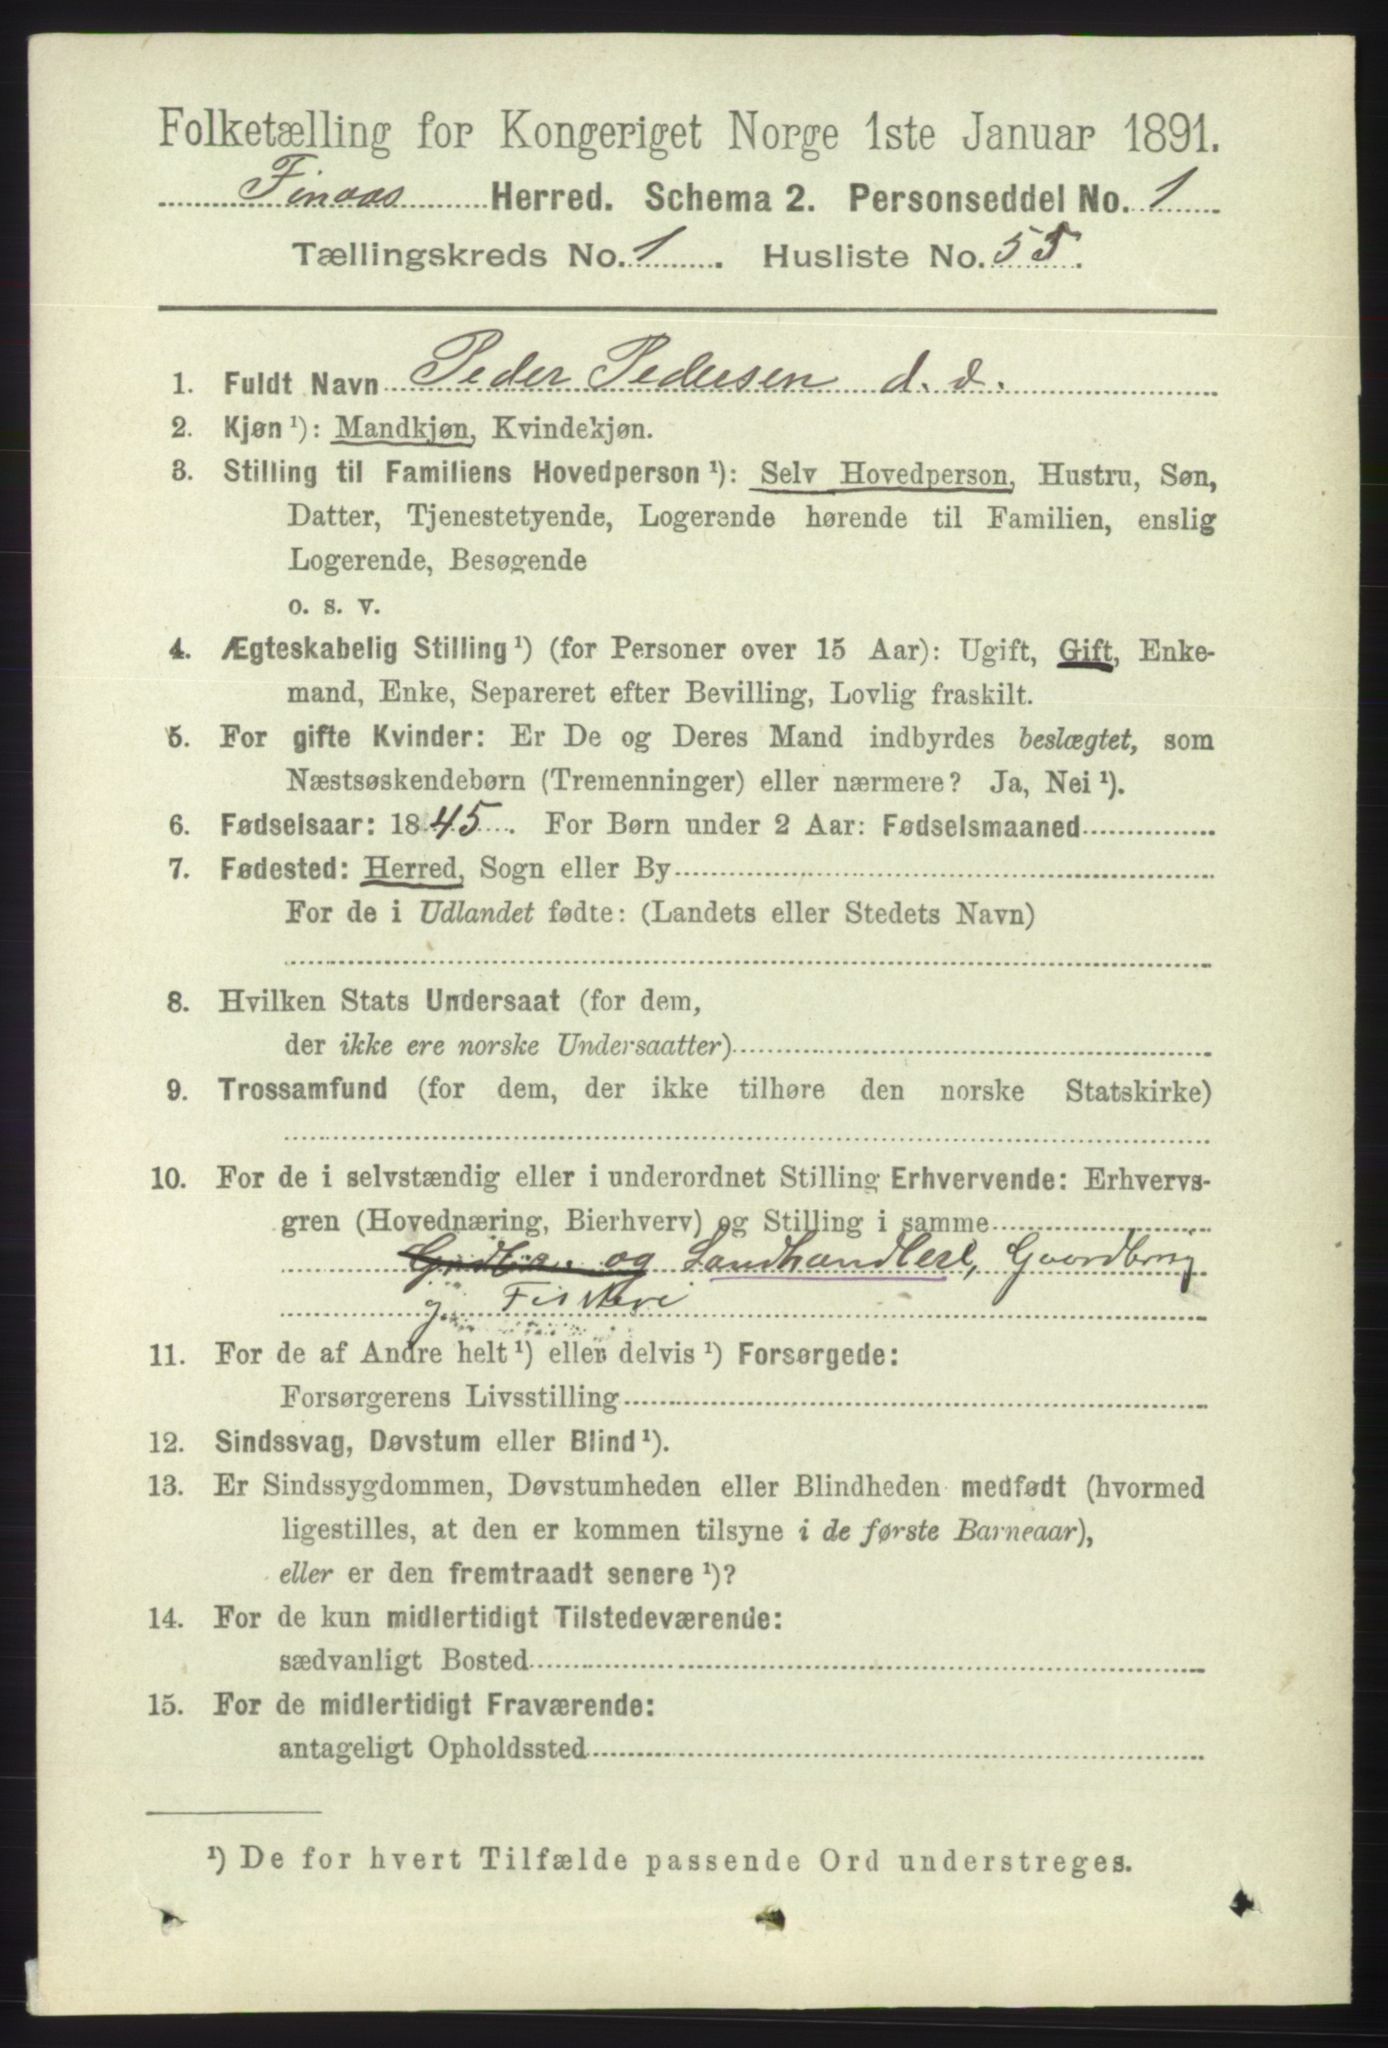 Folketælling for Kongeriget Norge 1ste Januar 1891.
Finaas Herred. Schema 2. Personseddel No. 1
Tællingskreds No. 1. Husliste No. 55.
1. Fuldt Navn Peder Pedersen d. æ.
2. Kjøn ¹): Mandkjøn, Kvindekjøn.
3. Stilling til Familiens Hovedperson ¹): Selv Hovedperson, Hustru, Søn,
Datter, Tjenestetyende, Logerende hørende til Familien, enslig
Logerende, Besøgende
o. s. v.
4. Ægteskabelig Stilling ¹) (for Personer over 15 Aar): Ugift, Gift, Enke-
mand, Enke, Separeret efter Bevilling, Lovlig fraskilt.
5. For gifte Kvinder: Er De og Deres Mand indbyrdes beslægtet, som
Næstsøskendebørn (Tremenninger) eller nærmere? Ja, Nei ¹).
6. Fødselsaar: 1845. For Børn under 2 Aar: Fødselsmaaned
7. Fødested: Herred, Sogn eller By
For de i Udlandet fødte: (Landets eller Stedets Navn)
8. Hvilken Stats Undersaat (for dem,
der ikke ere norske Undersaatter)
9. Trossamfund (for dem, der ikke tilhøre den norske Statskirke)
10. For de i selvstændig eller i underordnet Stilling Erhvervende: Erhvervs-
gren (Hovednæring, Bierhverv) og Stilling i samme
og Landhandleri, Gaardbrug
g. Fiskeri
11. For de af Andre helt ¹) eller delvis ¹) Forsørgede:
Forsørgerens Livsstilling
12. Sindssvag, Døvstum eller Blind ¹).
13. Er Sindssygdommen, Døvstumheden eller Blindheden medfødt (hvormed
ligestilles, at den er kommen tilsyne i de første Barneaar),
eller er den fremtraadt senere ¹)?
14. For de kun midlertidigt Tilstedeværende:
sædvanligt Bosted
15. For de midlertidigt Fraværende:
antageligt Opholdssted
¹) De for hvert Tilfælde passende Ord understreges.